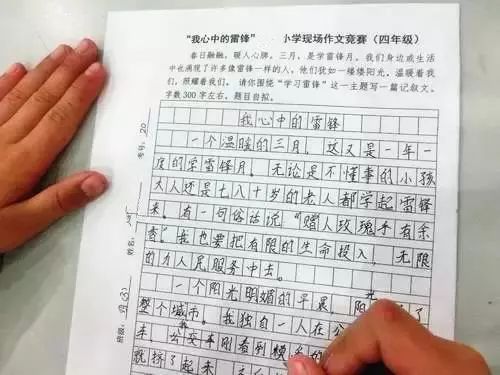 “我心中的雷锋”　小学现场作文竞赛（四年级）
春日融融，暖人心脾。三月，是学雷锋月。我们身边或生活
中也涌现了许多像雷锋一样的人，他们犹如一缕缕阳光，温暖着我
们，照耀着我们。 请你围绕“学习雷锋”这一主题写一篇记叙文。
字数300字左右，题目自拟。
我心中的雷锋
一个温暖的三月，这又是一年一
度的学雷锋月。无论是不懂事的小孩
大人还是七八十岁的老人都学起雷锋
来。有一句俗话说“赠人玫瑰手有余
香”我也要把有限的生命投入，无限
的为人民服务中去。
一个阳光明媚的早晨，阳光 了
整个城市。我独自一人在公
车 公交车刚看到
就挤了起来
考号：20
姓名：
班级：四(3)